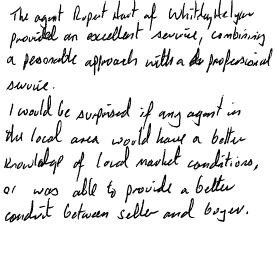 The agent Rupert Hart of Whitley Helyar
provided an excellent service, combining
a personable approach with a professional
service.
I would be surprised if any agent in
the local area would have a better
knowledge of local market conditions,
or was able to provide a better
conduit between seller and buyer.